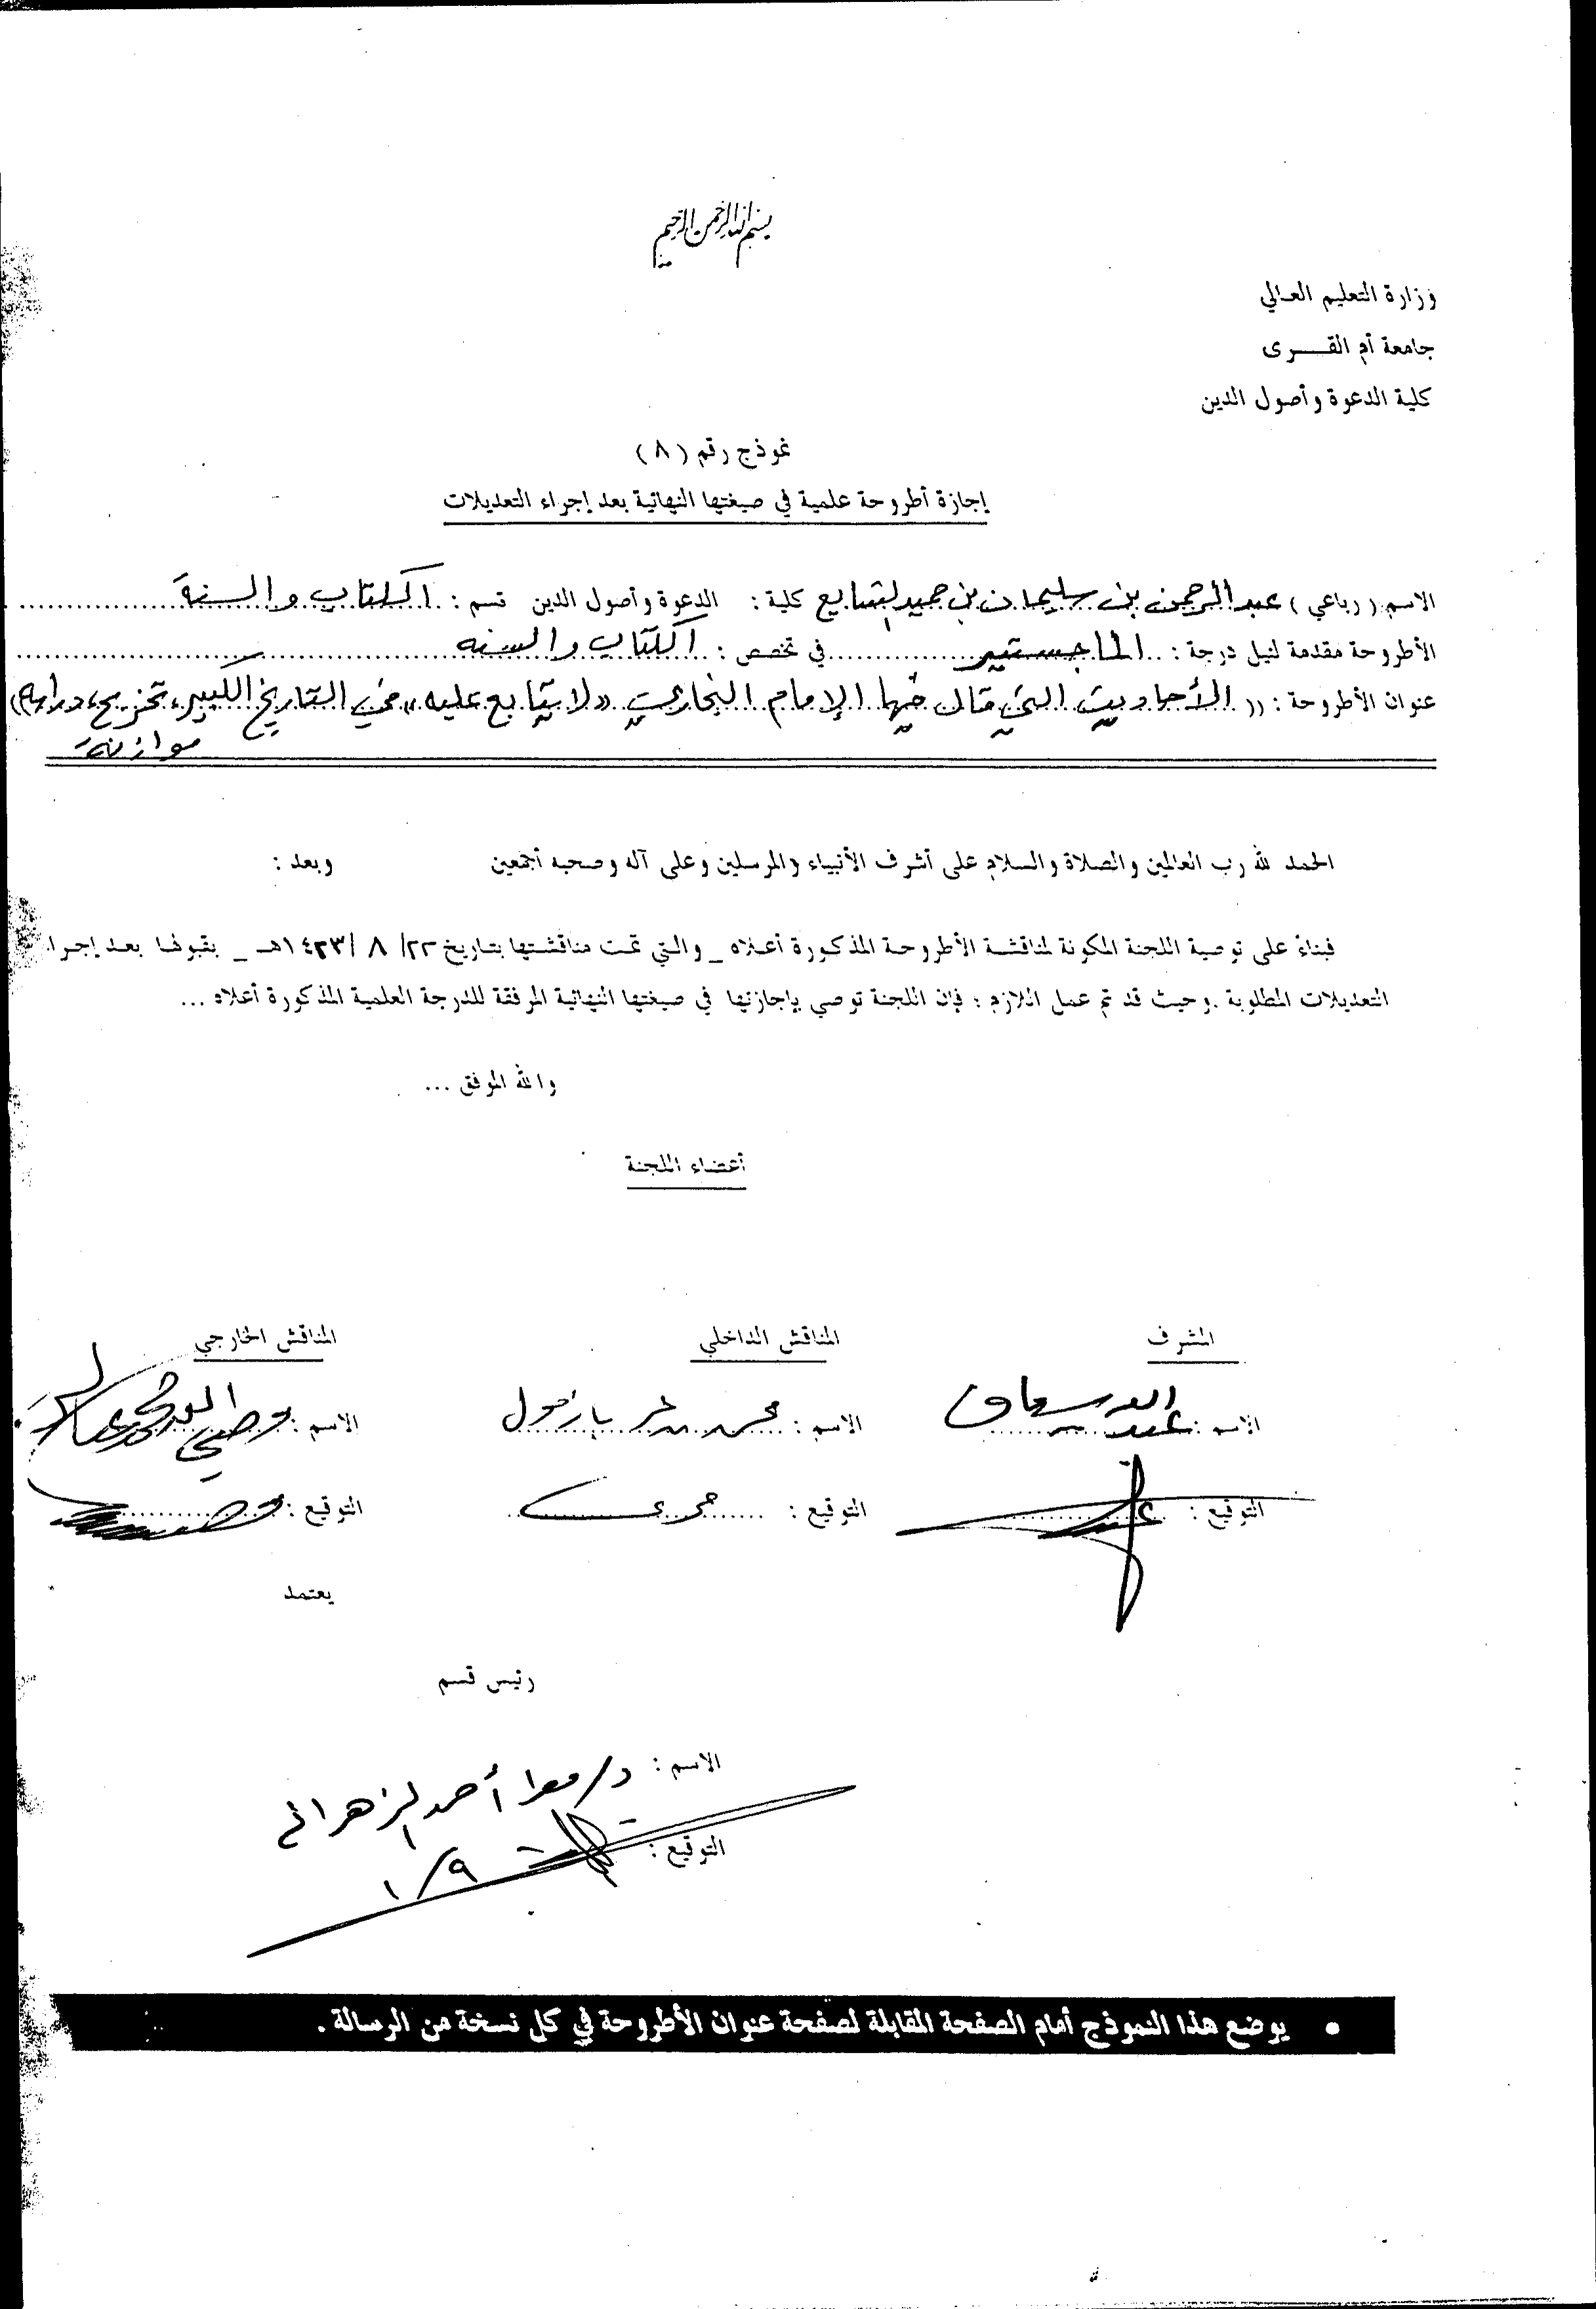 بسم الله الرحمن الرحيم
وزارة التعليم العالي
جامعة أم القــــرى
كلية الدعوة وأصول الدين
نموذج رقم (٨)
إجازة أطروحة علمية في صيغتها النهائية بعد إجراء التعديلات
الاسم (رباعي) عبد الرحمن بن سليمان بن حميد الشايع كلية : الدعوة وأصول الدين قسم : الكتاب والسنة
الأطروحة مقدمة لنيل درجة : الماجستير في تخصص : الكتاب والسنه
عنوان الأطروحة : (( الأحاديث التي قال فيها الإمام البخاري «لا يتابع عليه» في التاريخ الكبير، تخريج، دراسة)
موازنة
الحمد لله رب العالمين والصلاة والسلام على أشرف الأنبياء والمرسلين وعلى آله وصحبه أجمعين وبعد :
فبناءً على توصية اللجنة المكونة لمناقشة الأطروحة المذكورة أعلاه _ والتي تمت مناقشتها بتاريخ ٢٢/ ٨ /١٤٢٣هـ _ بقبولها بعد إجراء
التعديلات المطلوبة . وحيث قد تم عمل اللازم ؛ فإن اللجنة توصي بإجازتها في صيغتها النهائية المرفقة للدرجة العلمية المذكورة أعلاه ...
والله الموفق ...
أعضاء اللجنة
المشرف المناقش الداخلي المناقش الخارجي
الاسم : الاسم : محمد بن عمر بازمول الاسم : وصي الله بن محمد عباس
التوقيع : التوقيع : التوقيع :
يعتمد
رئيس قسم
الاسم : د/ أحمد الزهراني
التوقيع : ٩/١
• يوضع هذا النموذج أمام الصفحة المقابلة لصفحة عنوان الأطروحة في كل نسخة من الرسالة .